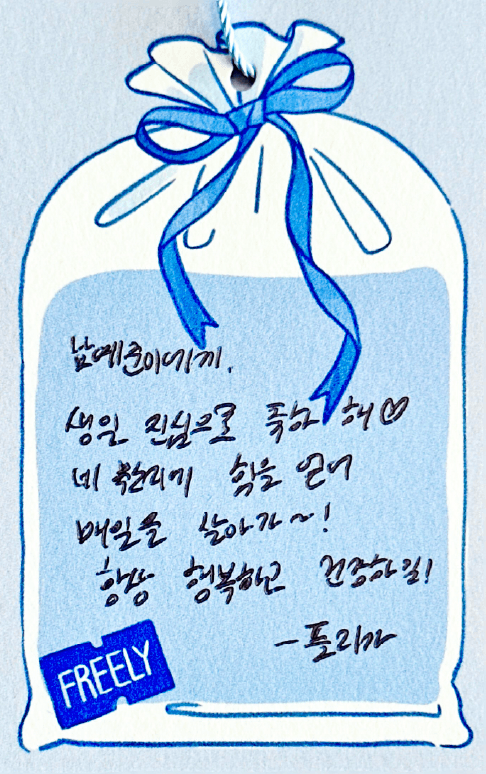 남예준이에게.
생일 진심으로 축하해♡
네 힘을 얻어
매일을 살아가~!
항상 행복하고 건강하길!
-플리가
FREELY